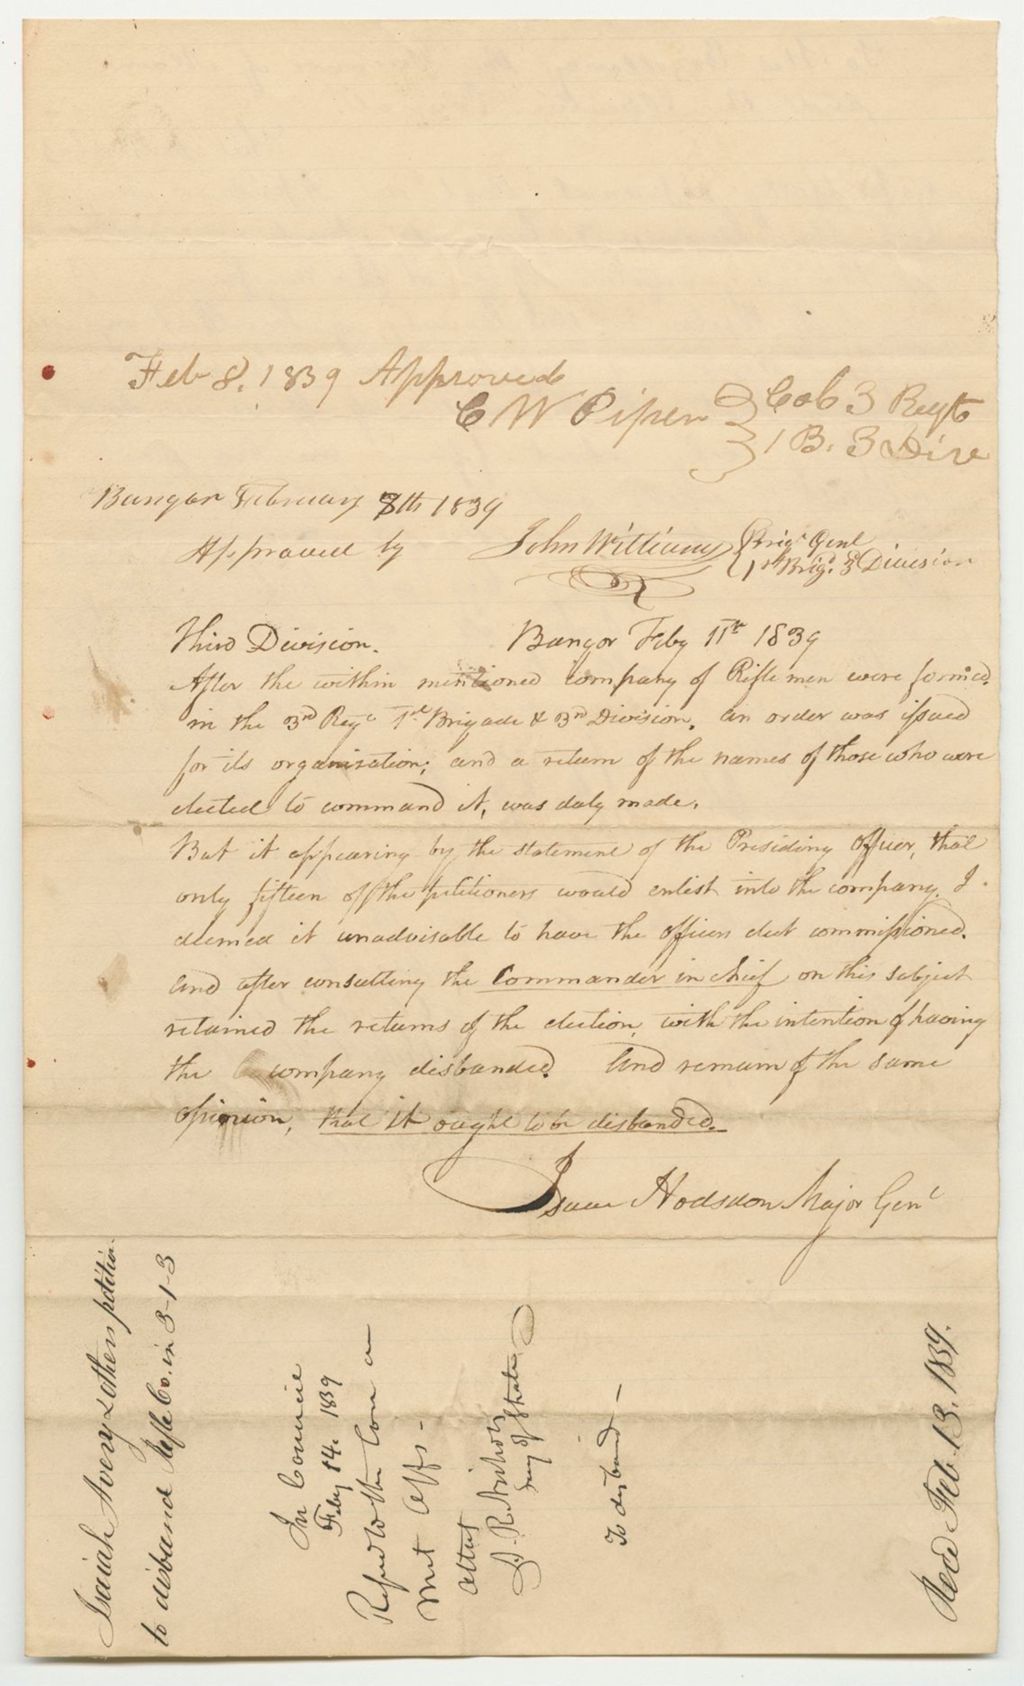 Feb 8. 1839 Approved
C W Piper } Col 3 Regt
1 B. 3 Div
Bangor February 8th 1839
Approved by John Williams { Brigr Genl
1st Brig. 3d Division
Third Division. Bangor Feby 11th 1839
After the within mentioned company of Riflemen were formed.
in the 3rd Regt 1st Brigade & 3rd Division. an order was issued
for its organisation; and a return of the names of those who were
elected to command it, was duly made.
But it appearing by the statement of the Presiding officer, that
only fifteen of the petitioners would enlist into the company, I
deemed it unadvisable to have the officers elect commissioned.
And after consulting the Commander in chief on this subject
retained the returns of the election, with the intention of having
the company disbanded. And remain of the same
opinion, that it ought to be disbanded.
Isaac Hodsdon Major Genl
Isaiah Avery & others petition
to disband Rifle Co. in 3-1-3
In Council
Feby 14. 1839
Refered to the Com on
Mil Affs -
attest
Secy of State
To disband -
Recd Feb. 13. 1839.